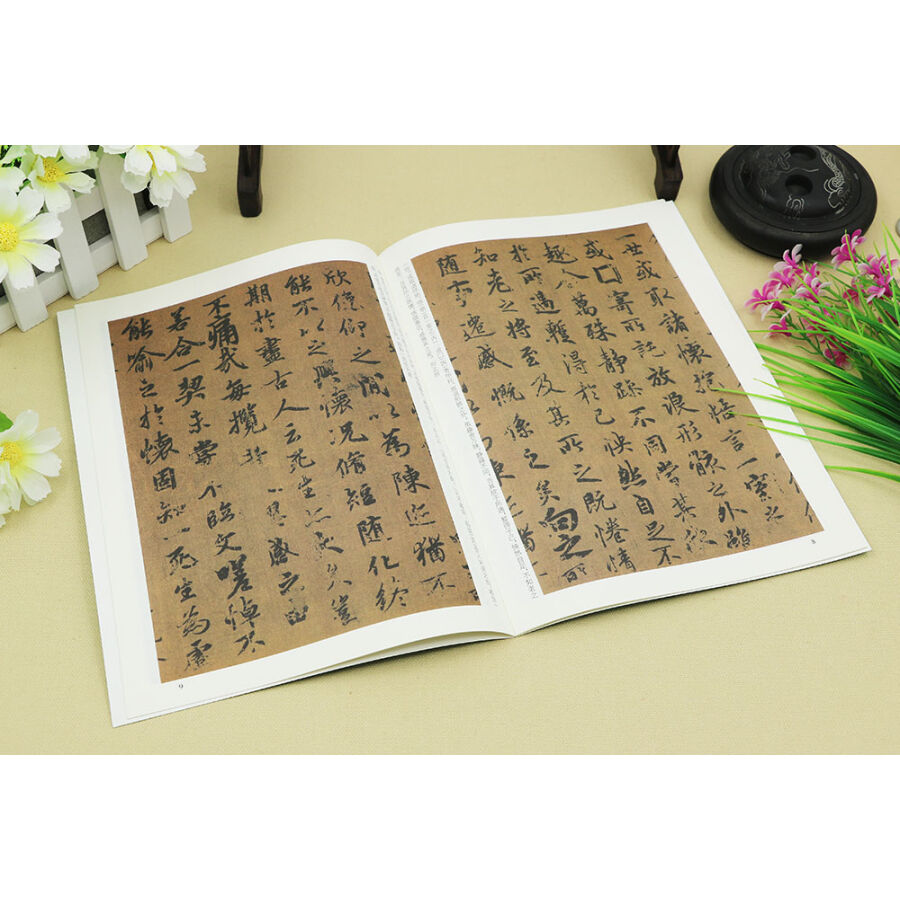 一世或取諸懷抱悟言一室之
或因寄所託放浪形骸之外雖
趣舍萬殊静躁不同當其欣
於所遇蹔得於己快然自足不
知老之將至及其所之既惓情
隨事遷感慨係之矣向之所
8
欣俛仰之間以為陳迹猶不
能不以之興懷況脩短隨化終
期於盡古人云死生亦大矣豈
不痛哉每攬昔人興感之由
若合一契未嘗不臨文嗟悼不
能喻之於懷固知一死生為虛
9